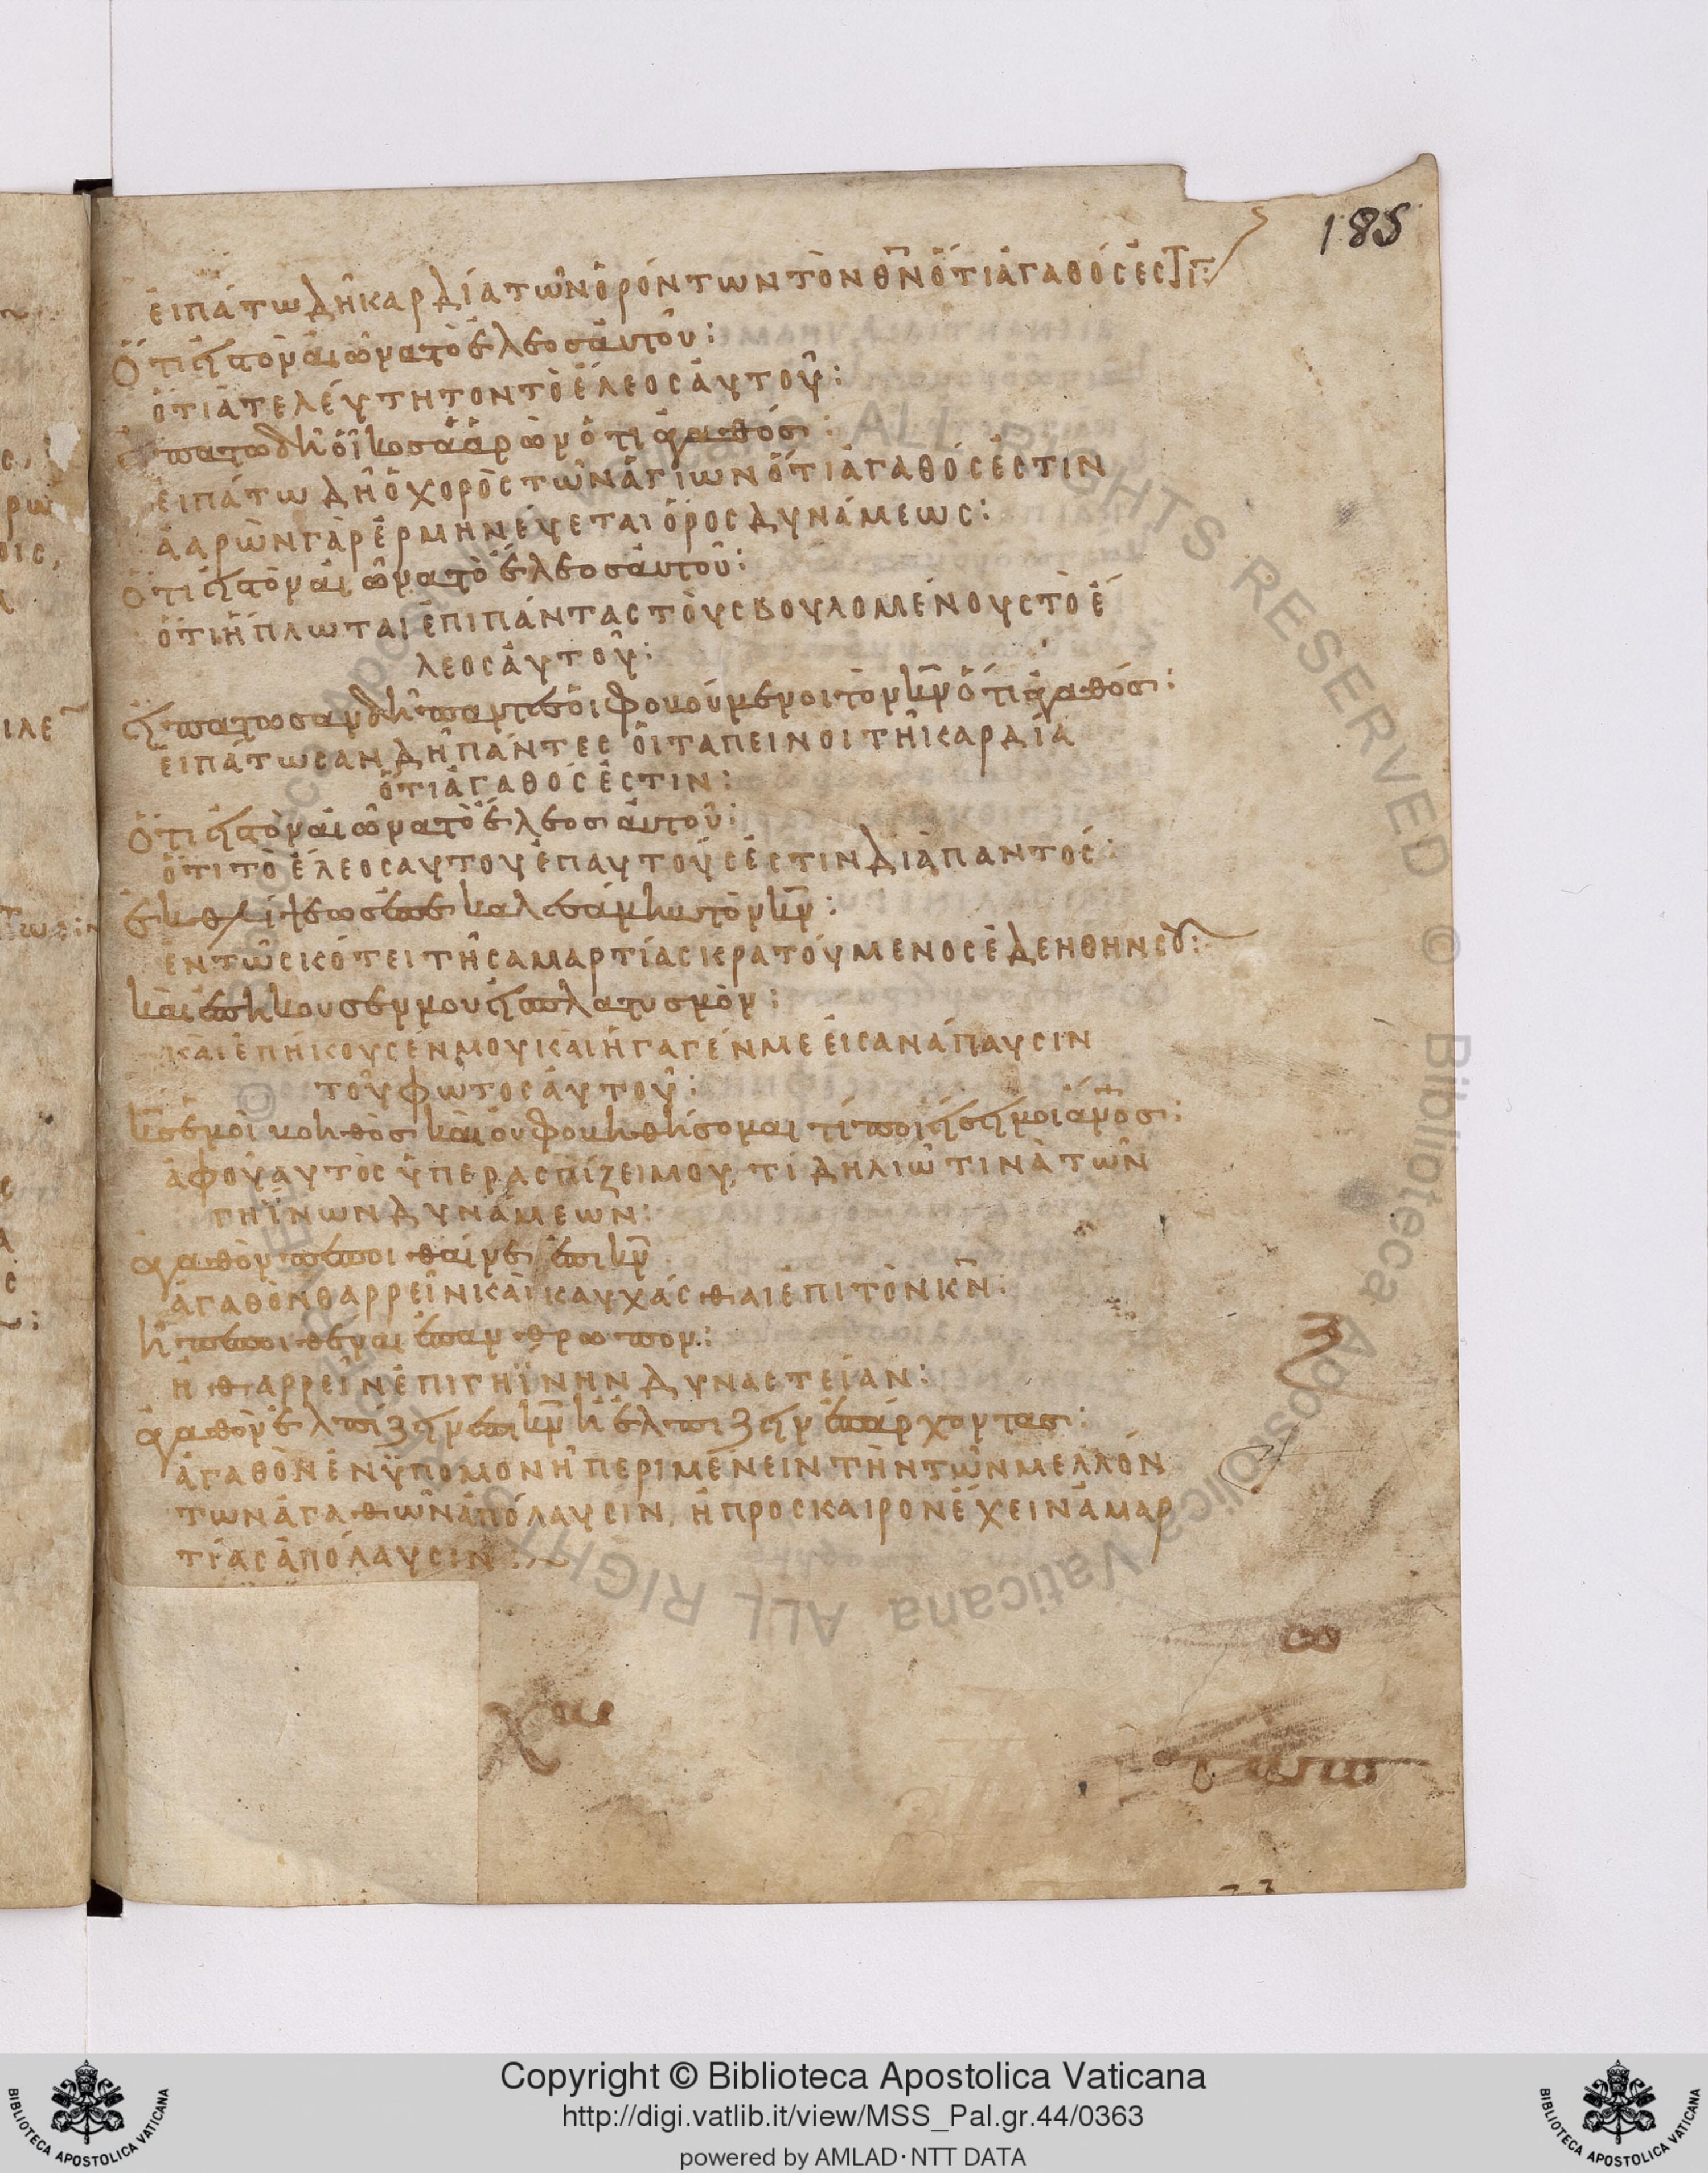 185
ἐιπάτω δὴ καρδία τῶν ὁρόντων τὸν θν̅ ὅτι ἀγαθός ἐστιν:
Ὅτι εἰς τὸν αἰῶνα τὸ ἔλεος αὐτοῦ:
ὅτι ἀτελέυτητον τὸ ἔλεος ἀυτοῦ:
ἐιπάτω δὴ ὅικος ἀαρὼν ὅτι ἀγαθός:
ἐιπάτω δὴ ὁ χορὸς τῶν ἁγίων ὅτι ἀγαθός ἐστιν
ἀαρὼν γὰρ ἑρμηνέυεται ὄρος δυνάμεως:
Ὅτι εἰς τὸν αἰῶνα τὸ ἔλεος ἀυτοῦ:
ὅτι ἥπλωται ἐπι πάντας τὸυς βουλομένους τὸ ἔ
λεος ἀυτοῦ:
εἰπάτωσαν δὴ πάντες ὁι φοβούμενοι τὸν κν̅ ὅτι ἀγαθός:
ἐιπάτωσαν δὴ πάντες ὁι ταπεινοι τῆι καρδία
ὅτι ἀγαθός ἐστιν:
Ὅτι εἰς τὸν αἰῶνα τὸ ἔλεος ἀυτοῦ:
ὅτι τὸ ἔλεος αυτου ἐπ αυτοὺς ἐστιν διὰ παντός:
ἐκ θλίψεως ἐπεκαλεσάμην τὸν κν̅:
ἐν τῶ σκότει τῆς αμαρτίας κρατούμενος ἐδεήθην σου:
κὰι ἐπήκουσεν μου εἰς πλατυσμὸν:
και ἐπήκουσέν μου κὰι ἤγαγέν με ἐις ανάπαυσιν
τοῦ φωτος ἀυτοῦ:
κς̅ ἐμοὶ βοηθὸς κὰι ὀυ φοβηθήσομαι τί ποιήσει μοι ἄνος̅:
ἀφ ού αυτὸς ὑπερασπίζει μου, τί δηλιῶ τινὰ τῶν
γηΐνων δυνάμεων:
ἀγαθὸν πεποιθαίνε ἐπι κν̅
ἀγαθὸν θαρρεῖν κὰι καυχάσθαι ἐπι τὸν κν̅:
ἢ πεποιθεναι ἐπ αν θρωπον:
ἢ θαρρεῖν ἐπι γηΐνην δυναστείαν:
ἀγαθὸν ἐλπίζειν ἐπι κν̅ ἢ ἐλπιζειν ἐπ άρχοντας:
ἀγαθὸν ἐν ὑπομονῆ περιμένειν τὴν τῶν μελλόν
των ἀγαθῶν ἀπόλαυσιν, ἢ προσκαιρον ἔχειν ἁμαρ
τίας ἀπόλαυσιν:
Copyright © Biblioteca Apostolica Vaticana
http://digi.vatlib.it/view/MSS_Pal.gr.44/0363
powered by AMLAD·NTT DATA